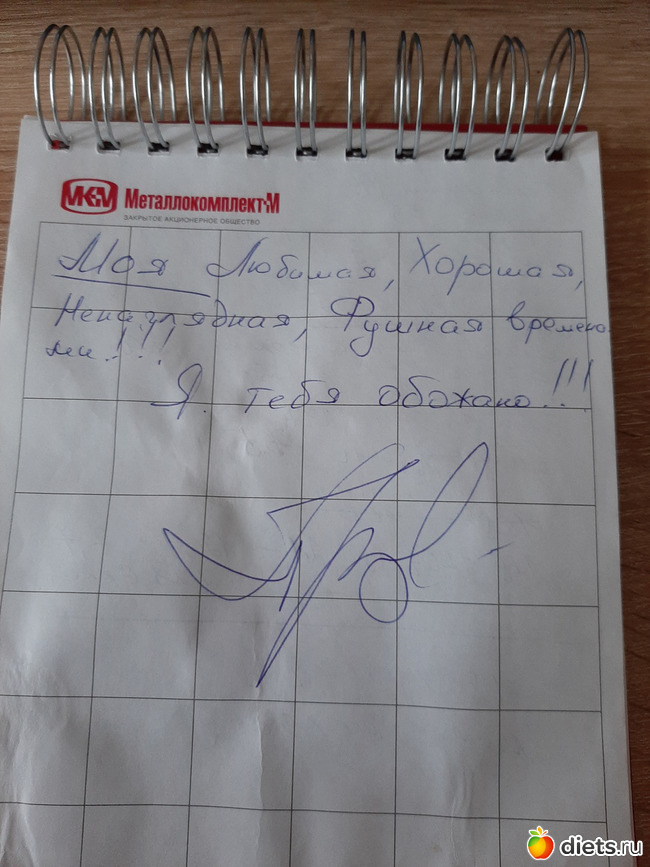 МКМ МЕТАЛЛОКОМПЛЕКТ-М
ЗАКРЫТОЕ АКЦИОНЕРНОЕ ОБЩЕСТВО
Моя Любимая, Хорошая,
Ненаглядная, Фушная времена
ми!!!
Я тебя обожаю!!!
diets.ru